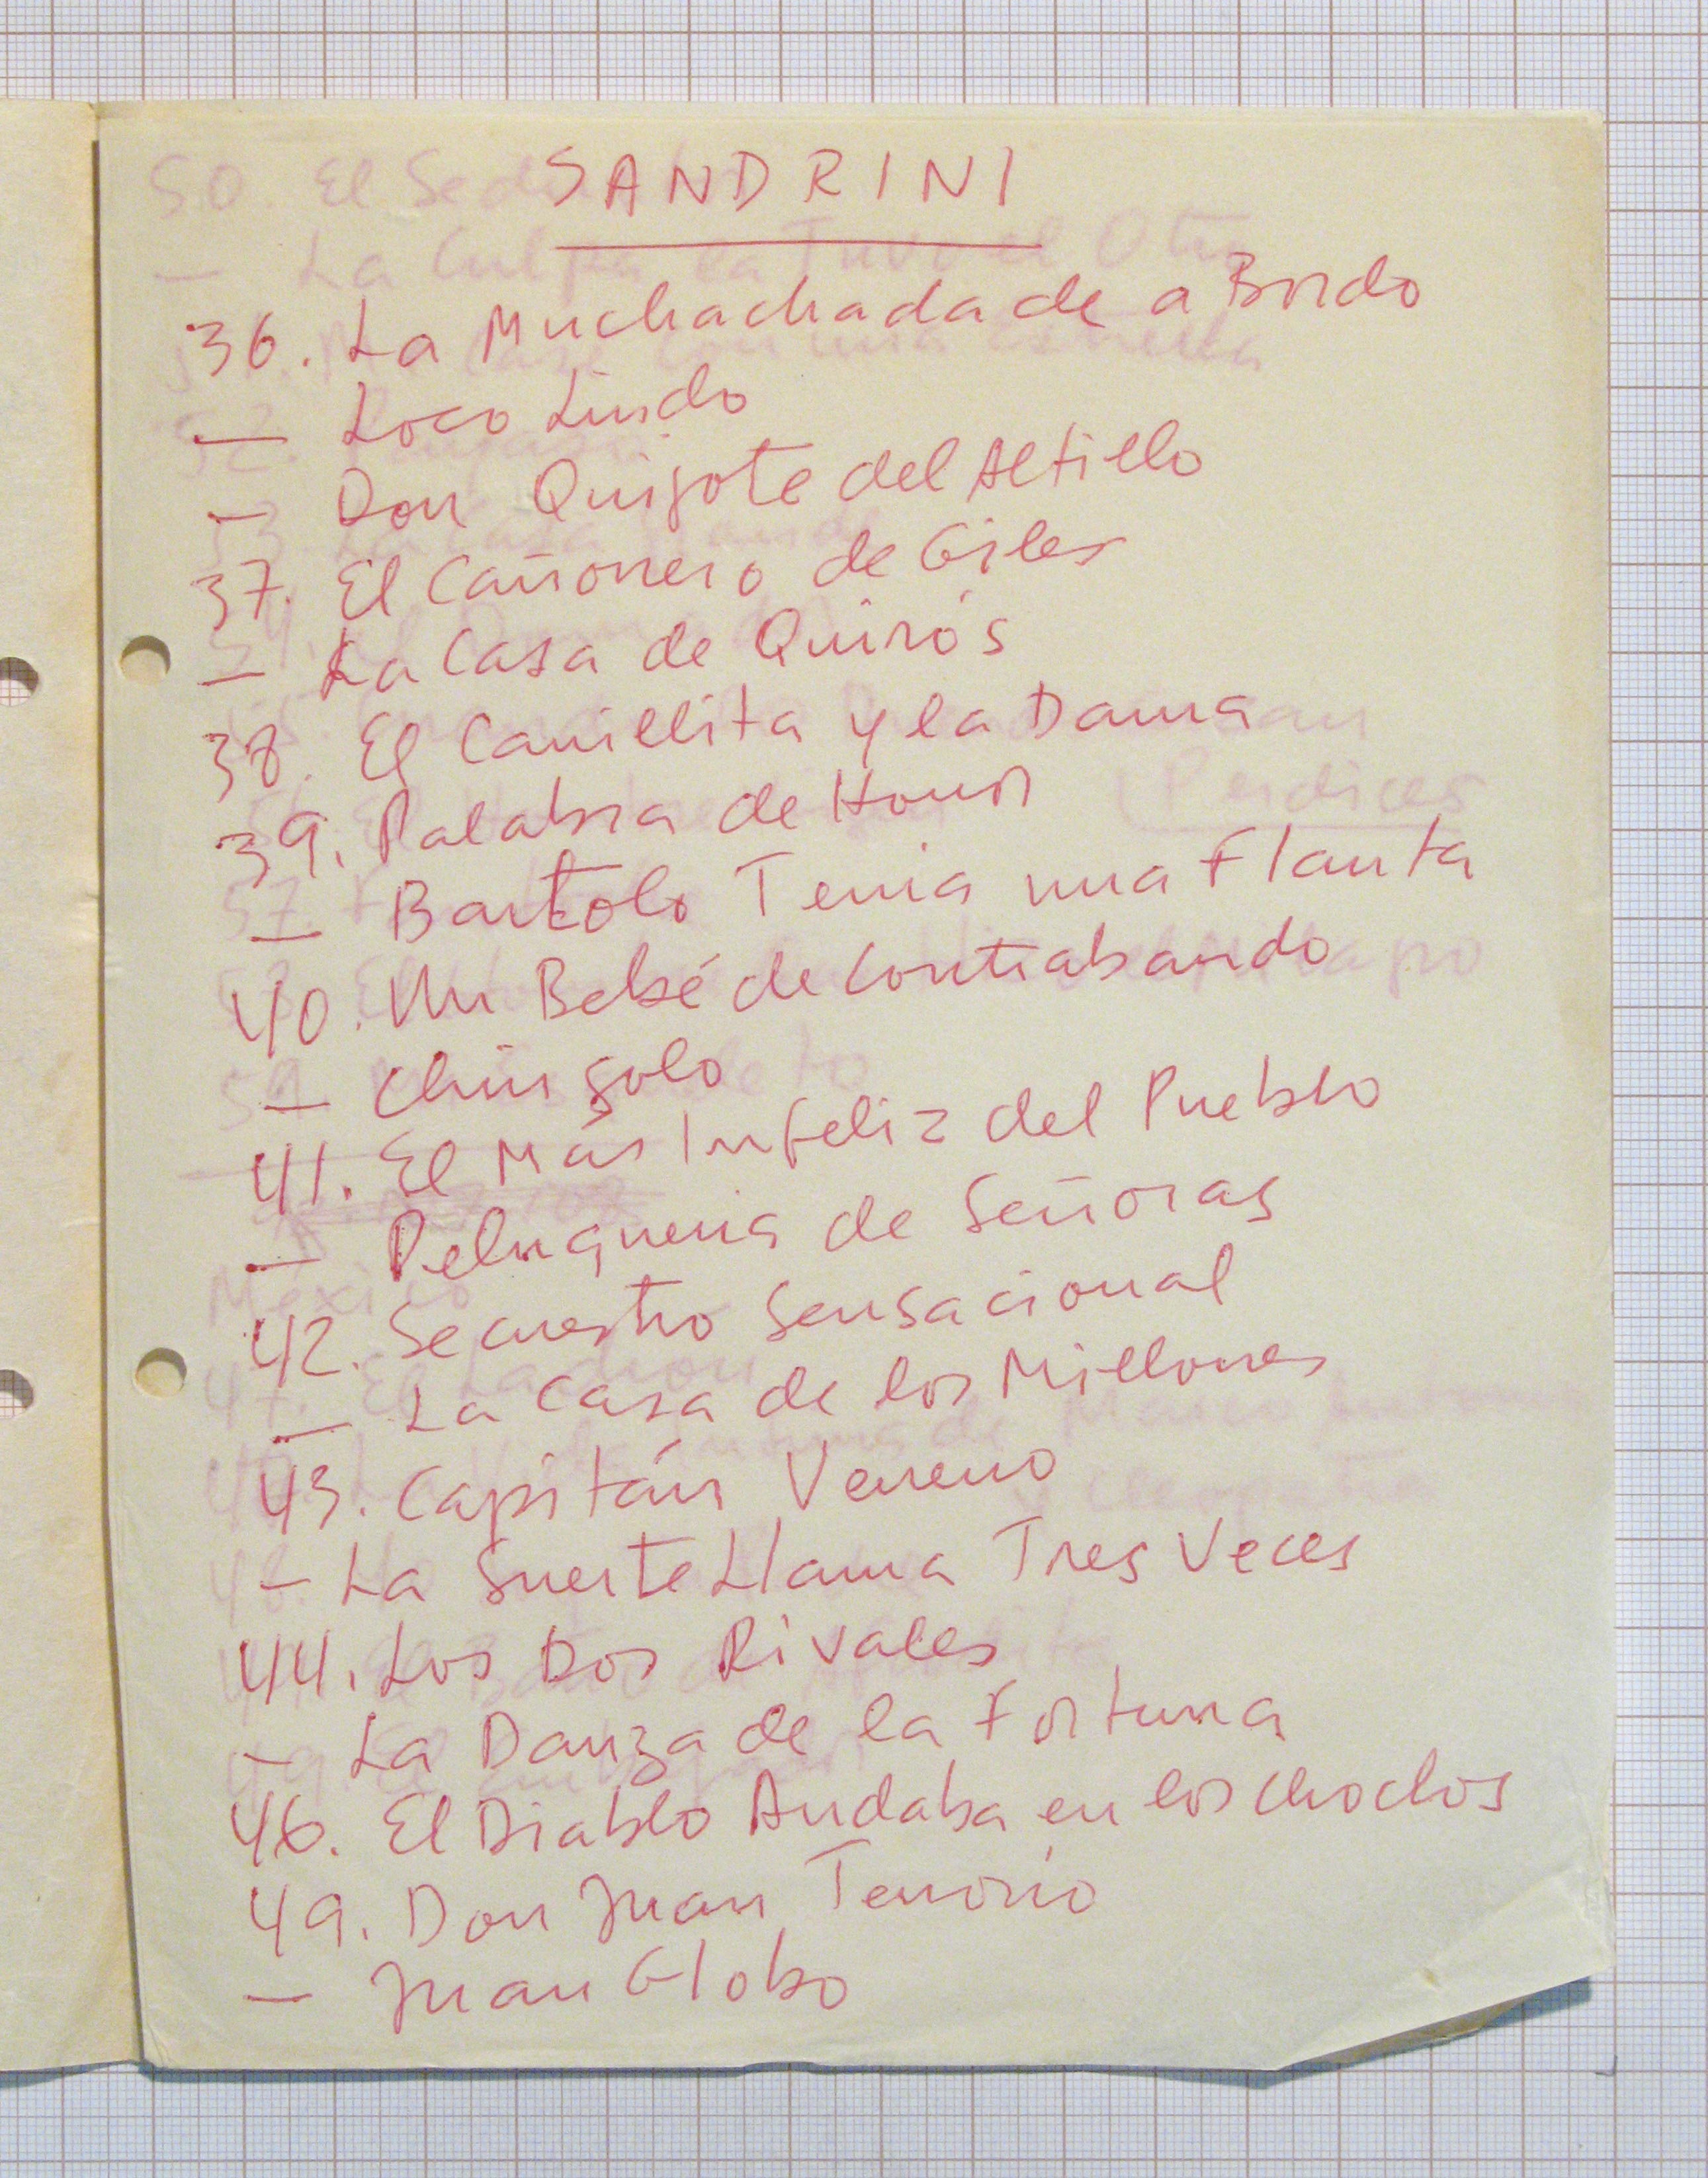 SANDRINI
36. La Muchachada de a Bordo
— Loco Lindo
— Don Quijote del Altillo
37. El Cañonero de Giles
— La Casa de Quirós
38. El Canillita y la Dama
39. Palabra de Honor
— Bartolo Tenía una Flauta
40. Un Bebé de Contrabando
— Chingolo
41. El Más Infeliz del Pueblo
— Peluquería de Señoras
42. Secuestro Sensacional
— La Casa de los Millones
43. Capitán Veneno
— La Suerte Llama Tres Veces
44. Los Dos Rivales
— La Danza de la Fortuna
46. El Diablo Andaba en los Choclos
49. Don Juan Tenorio
— Juan Globo